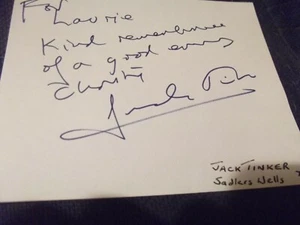 For
Laurie
Kind remembrance
of a good
Jack Tinker
JACK TINKER
Sadlers Wells